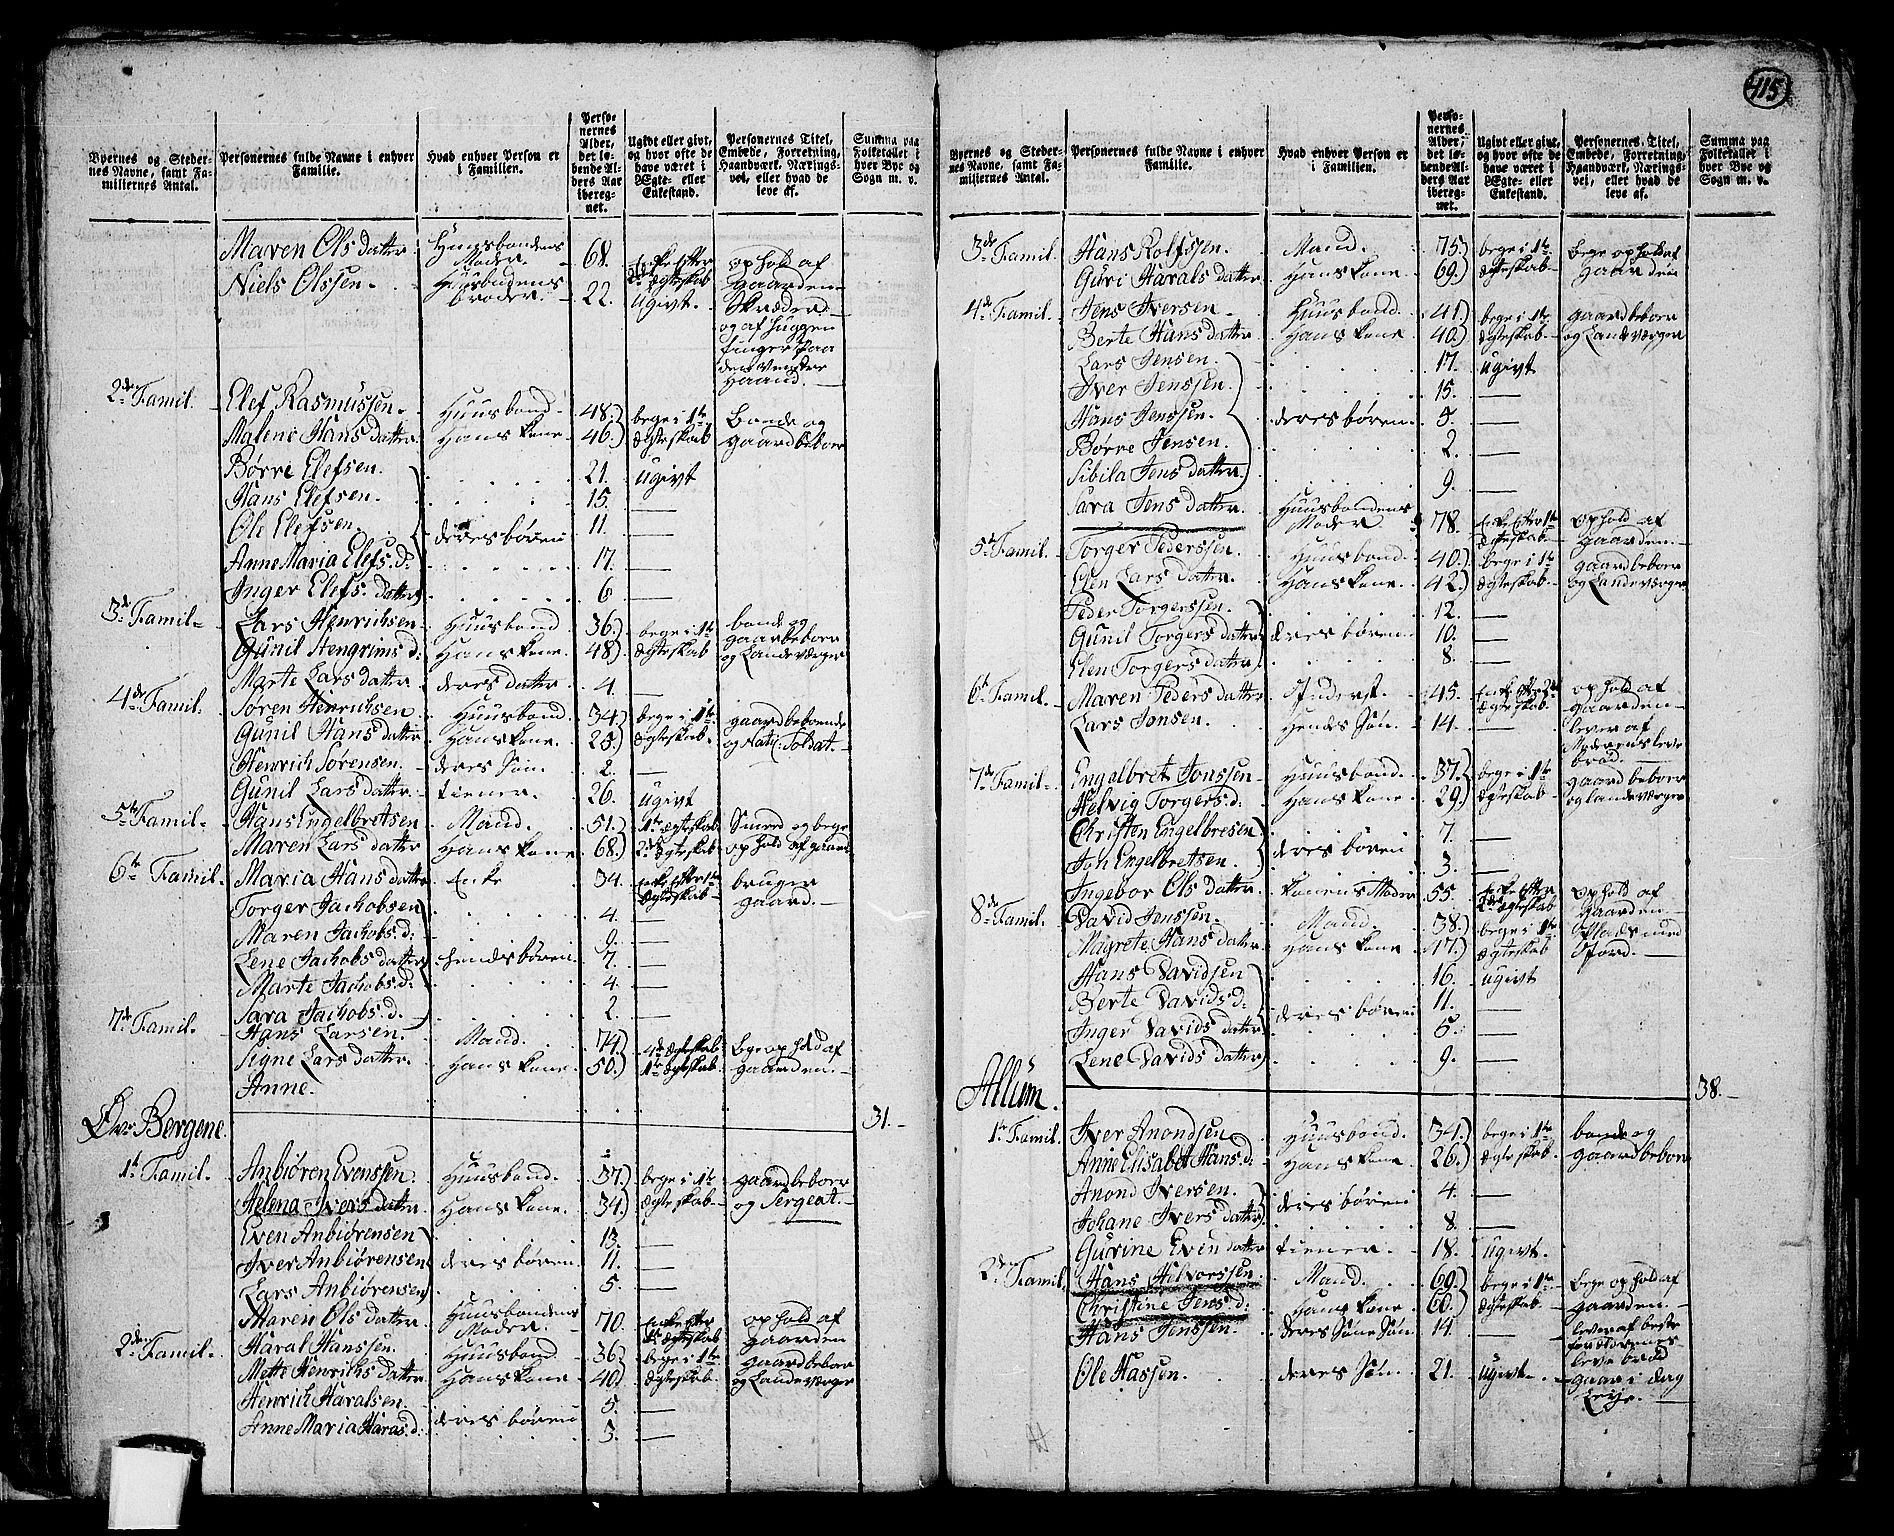 415
Byernes og Steder-nes Navne, samt Fa-miliernes Antal. | Personernes fulde Navne i enhver Familie. | Hvad enhver Person er i Familien. | Perso-nernes Alder, det lø-bende Al-ders Aar iberegnet. | Ugivt eller givt, og hvor ofte de have været i Ægte- eller Enkestand. | Personernes Titel, Embede, Forretning, Haandværk, Nærings-vei, eller hvad de leve af. | Summa paa Folketallet i hver Bye og Sogn m. v.
Maren Ols datter | Huusbondens Moder | 68. | Enke efter Ægteskab | ophold af gaarden
Niels Olssen | Huusbondens broder | 22. | Ugivt | Skræder og af huggen finger paa den venstre Haand.
2de Famil. Elef Rasmussen | Huusbond | 48. | bege i 1te Ægteskab | Bonde og gaardbeboer
Malene Hans datter | Hans kone | 46.
Børre Elefsen. | 21. | ugivt
Hans Elefsen. | 15. | —
Ole Elefsen. | deres børen | 11. | —
Anne Maria Elefs. d: | 17. | —
Inger Elefs. datter | 6 | —
3de Famil. Lars Henrichsen | Huusbond | 36. | bege i 1te Ægteskab | bonde og gaarbeboer og Landeværger
Gunil Stengrims d: | Hans kone | 48
Marte Lars datter | deres datter | 4. | —
4de Famil. Søren Henrichsen | Huusbond | 34. | bege i 1te Ægteskab | gaardbeboende og Nati: Soldat
Gunil Hans datter | Hans kone. | 25.
Henrich Sørensen. | deres Søn | 2. | —
Gunil Lars datter | tiener. | 26. | ugivt
5te Famil. Hans Engelbretsen | Mand. | 51. | 1te Ægteskab | Smed og bege ophold af gaard
Maren Lars datter | Hans kone | 68. | 2det Ægteskab
6te Famil. Maria Hans datter | Enke | 34. | Enke efter 1te Ægteskab | bruger gaard.
Torger Jachobsen | 4. | —
Maren Jachobs. d: | 9. | —
Lene Jachobs datter | hendes børen | 7. | —
Marte Jachobs. d: | 4. | —
Sara Jachobs. d. | 2. | —
7de Famil. Hans Larsen. | Mand. | 74. | 4de Ægteskab | bege ophold af gaarden.
Signe Lars datter. | Hans kone. | 50. | 1te Ægteskab
Anne.
31.
Øvr Bergene.
1te Famil. Anbiøren Evenssen | Huusbond. | 37. | bege i 1te Ægteskab | gaardbeboer og Sergeat
Helena Ivers datter | Hans kone. | 34.
Even Anbiørensen | 13. | —
Iver Anbiørensen | deres børen | 11. | —
Lars Anbiørensen | 5. | —
Maren Ols datter | Huusbondens Moder | 70. | Enke efter Ægteskab | ophold af gaarden
2den Famil. Haral Hanssen. | Huusbond | 36 | bege i 1te Ægteskab | gaardbeboer og Landeværger
Mette Henrichs datter | Hans kone | 40
Henrich Haralsen. | 5. | —
Anne Maria Haras. d: | deres børen | 3. | —
Byernes og Steder-nes Navne, samt Fa-miliernes Antal. | Personernes fulde Navne i enhver Familie. | Hvad enhver Person er i Familien. | Perso-nernes Alder, det lø-bende Al-ders Aar iberegnet. | Ugivt eller givt, og hvor ofte de have været i Ægte- eller Enkestand. | Personernes Titel, Embede, Forretning, Haandværk, Nærings-vei, eller hvad de leve af. | Summa paa Folketallet i hver Bye og Sogn m. v.
3de Famil. Hans Rolfssen. | Mand. | 75. | bege i 1te Ægteskab | bege ophold af gaarden
Guri Harals datter | Hans kone. | 69.
4de Famil. Jens Iversen | Huusbond | 41. | bege i 1te Ægteskab | gaardbeboer og Landeværger
Berte Hans datter | Hans kone | 40.
Lars Jensen. | 17. | ugivt
Iver Jenssen. | 15. | —
Hans Jenssen. | deres børen | 5. | —
Børre Jensen. | 2. | —
Sibila Jens datter. | 9. | —
Sara Jens datter | Huusbondens Moder | 78. | Enke efter 1te Ægteskab | ophold af gaarden.
5te Famil. Torger Pederssen. | Huusbond | 40. | bege i 1te Ægteskab | gaardbeboer og Landeværger
Elen Lars datter. | Hans kone | 42.
Peder Torgerssen. | 12. | —
Gunil Torgers datter | deres børen | 10. | —
Elen Torgers datter | 8. | —
6te Famil. Maren Peders datter | Inderst. | 45. | Enke efter 2det Ægteskab | ophold af gaarden
Lars Jonsen. | Hendes Søn | 14. | — | lever af Moderens leve brød.
7de Famil. Engelbret Jonssen | Huusbond | 37. | bege i 1te Ægteskab | gaardbeboer og landeværger
Helvig Torgers. d: | Hans kone. | 29.
Christen Engelbresen | 7. | —
Jon Engelbretsen. | deres børen | 3. | —
Ingebor Ols datter | konens Moder | 55. | Enke efter Ægteskab | ophold af gaarden
8de Famil. David Jonssen. | Mand. | 38. | bege i 1te Ægteskab | Plads med Jord.
Magrete Hans datter | Hans kone | 47.
Hans Davidsen | 16. | ugivt
Berte Davids d: | deres børen | 11. | —
Inger Davids datter | 5. | —
Lene Davids datter | 9. | —
38.
Allum.
1te Famil. Iver Anondsen | Huusbond. | 34. | bege i 1te Ægteskab | bonde og gaardbeboer
Anne Elisabet Hans. d: | Hans kone | 26.
Anond Iversen. | deres børen | 4. | —
Johane Ivers datter | 8. | —
Gurine Even datter | tiener | 18. | ugivt.
2den Famil. Hans Helvorssen. | Mand. | 69. | bege i 1te Ægteskab | bege ophold af gaarden.
Christine Jens. d: | Hans kone. | 60.
Hans Jenssen. | deres Søne Søn | 14. | — | lever af beste forældrenes leve brød
Ole Hassen. | deres Søn | 21. | ugivt | gaar i dag Leje.